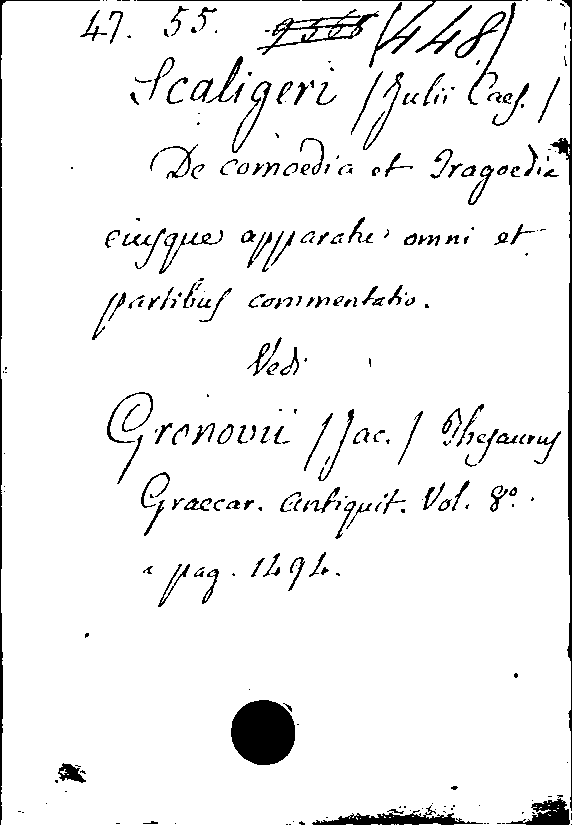 47. 55. 9365 (448)
Scaligeri /Julii Caes./
De comoedia et Tragoedia
eiusque apparatu omni et
partibus commentatio.
Vedi
Gronovii /Jac./ Thesaurus
Graecar. Antiquit. Vol. 8º.
a pag. 1494.